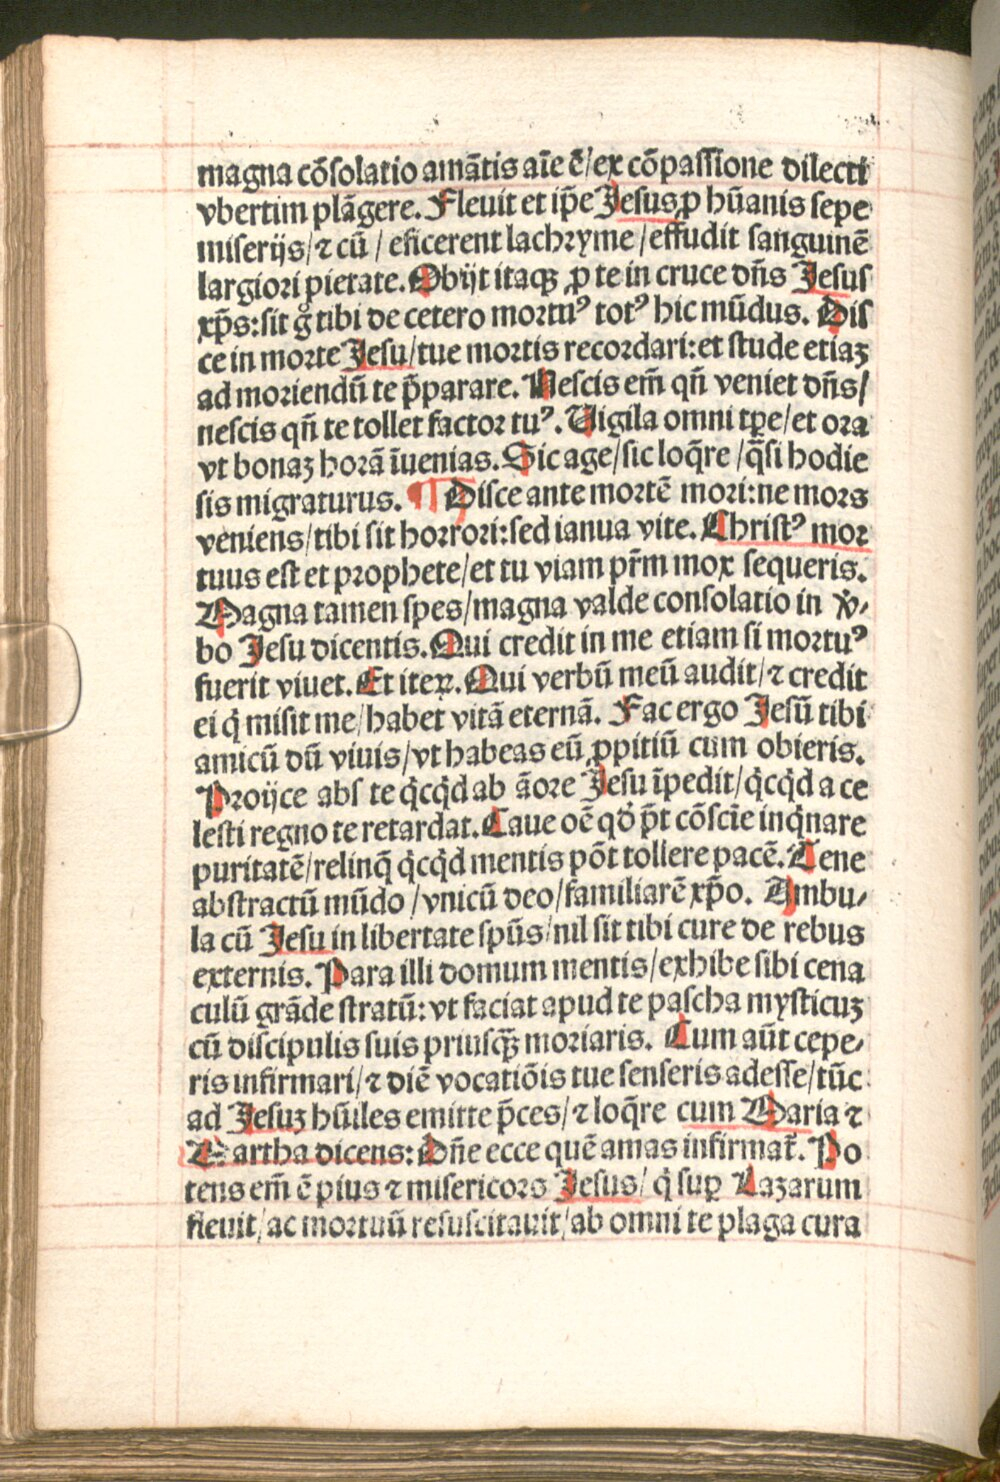 magna cõsolatio amãtis aĩe ẽ/ex cõpassione dilecti
vbertim plãgere. Fleuit et ip̃e Jesus ꝓ hũanis sepe
miserijs/⁊ cũ / eficerent lachryme /effudit sanguinẽ
largiori pietate. Obijt itaqꝫ ꝓ te in cruce dñs Jesus
xp̃s: sit g̊ tibi de cetero mortuꝰ totꝰ hic mũdus. Dis
ce in morte Jesu/tue mortis recordari: et stude etiaꝫ
ad moriendũ te p̃parare. Nescis em̃ qñ veniet dñs/
nescis qñ te tollet factor tuꝰ. Uigila omni tꝑe/et ora
vt bonaꝫ horã ĩuenias. Sic age/sic loq̃re /q̃si hodie
sis migraturus. ¶ Disce ante mortẽ mori: ne mors
veniens/tibi sit horrori: sed ianua vite. Christꝰ mor
tuus est et prophete/et tu viam pr̃m mox sequeris.
Magna tamen spes/magna valde consolatio in v̾-
bo Jesu dicentis. Qui credit in me etiam si mortuꝰ
fuerit viuet. Et iteꝝ. Qui verbũ meũ audit/⁊ credit
ei q̇ misit me/habet vitã eternã. Fac ergo Jesũ tibi
amicũ dũ viuis/vt habeas eũ ꝓpitiũ cum obieris.
Proijce abs te q̇cq̇d ab ãore Jesu ĩpedit/q̇cq̇d a ce
lesti regno te retardat. Caue oẽ qđ p̃t cõscĩe inq̇nare
puritatẽ/relinq̃ q̇cq̇d mentis põt tollere pacẽ. Tene
abstractũ mũdo /vnicũ deo/familiarẽ xp̃o. Ambu-
la cũ Jesu in libertate spũs/nil sit tibi cure de rebus
externis. Para illi domum mentis/exhibe sibi cena
culũ grãde stratũ: vt faciat apud te pascha mysticuꝫ
cũ discipulis suis priusq̃ꝫ moriaris. Cum aũt cepe-
ris infirmari/⁊ diẽ vocatiõis tue senseris adesse/tũc
ad Jesuꝫ hũiles emitte p̃ces/⁊ loq̃re cum Maria ⁊
Martha dicens: Dñe ecce quẽ amas infirmat̃. Po
tens em̃ ẽ pius ⁊ misericors Jesus/ q̇ suꝑ Lazarum
fleuit/ac mortuũ resuscitauit/ab omni te plaga cura